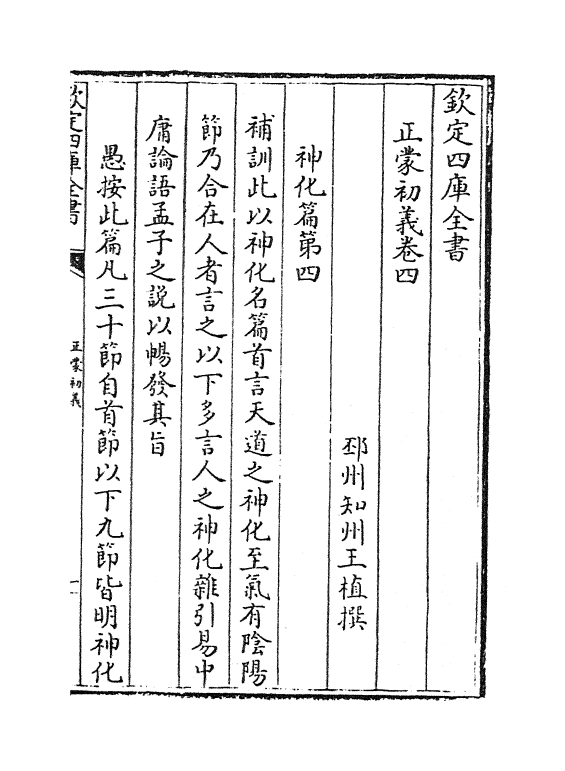 欽定四庫全書
正蒙初義卷四
邳州知州王植撰
神化篇第四
補訓此以神化名篇首言天道之神化至氣有陰陽
節乃合在人者言之以下多言人之神化雜引易中
庸論語孟子之說以暢發其旨
愚按此篇凡三十節自首節以下九節皆明神化
欽定四庫全書
正蒙初義
一